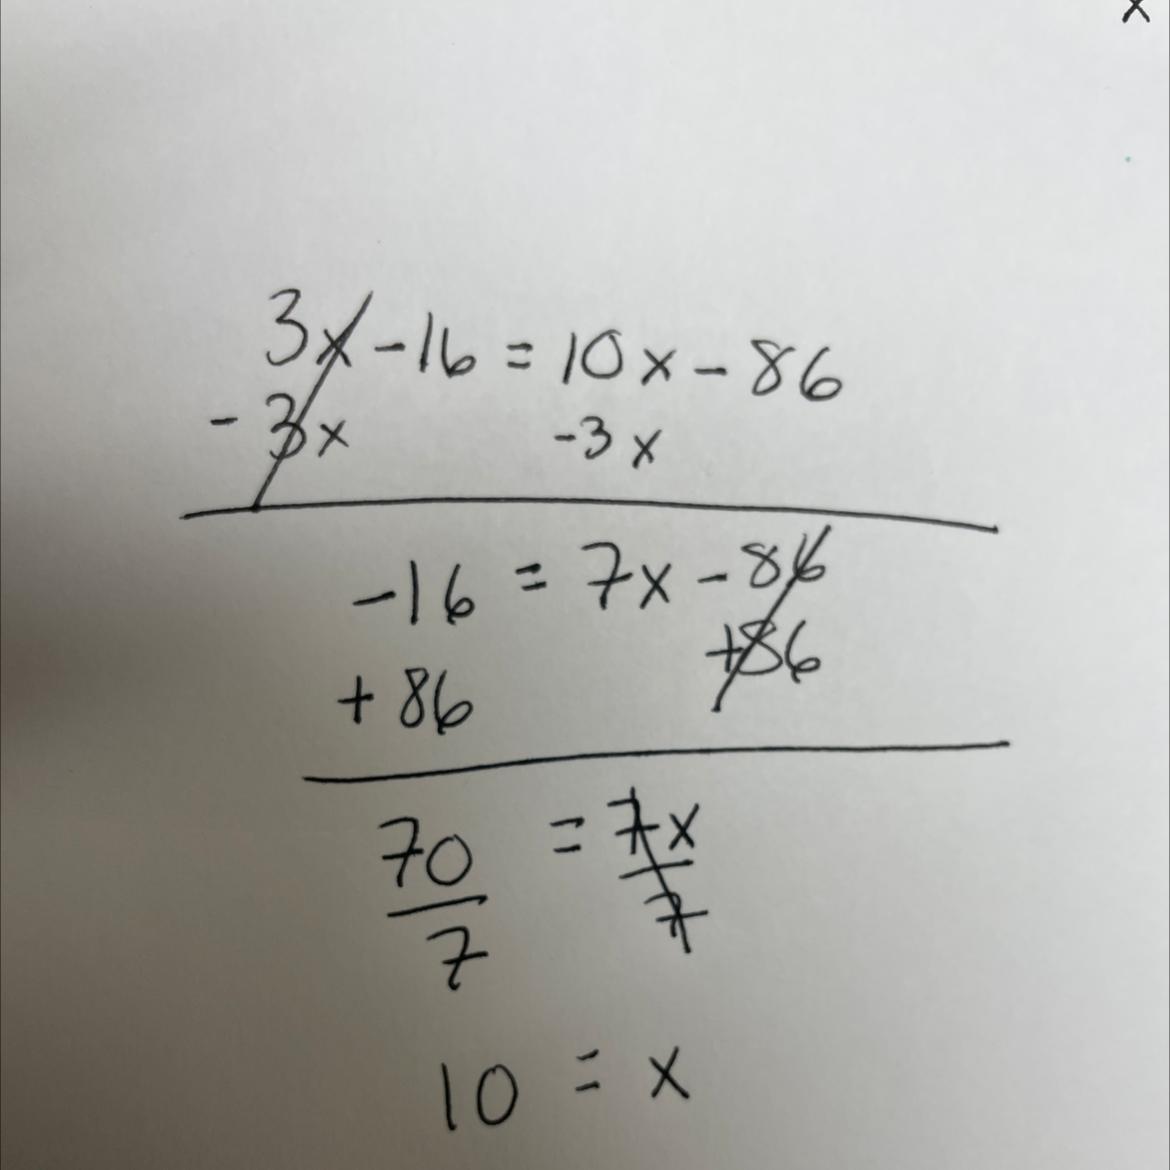 x
3x - 16 = 10x - 86
- 3x -3x
-16 = 7x - 86
+86
+ 86
70 = 7x
7 7
10 = x